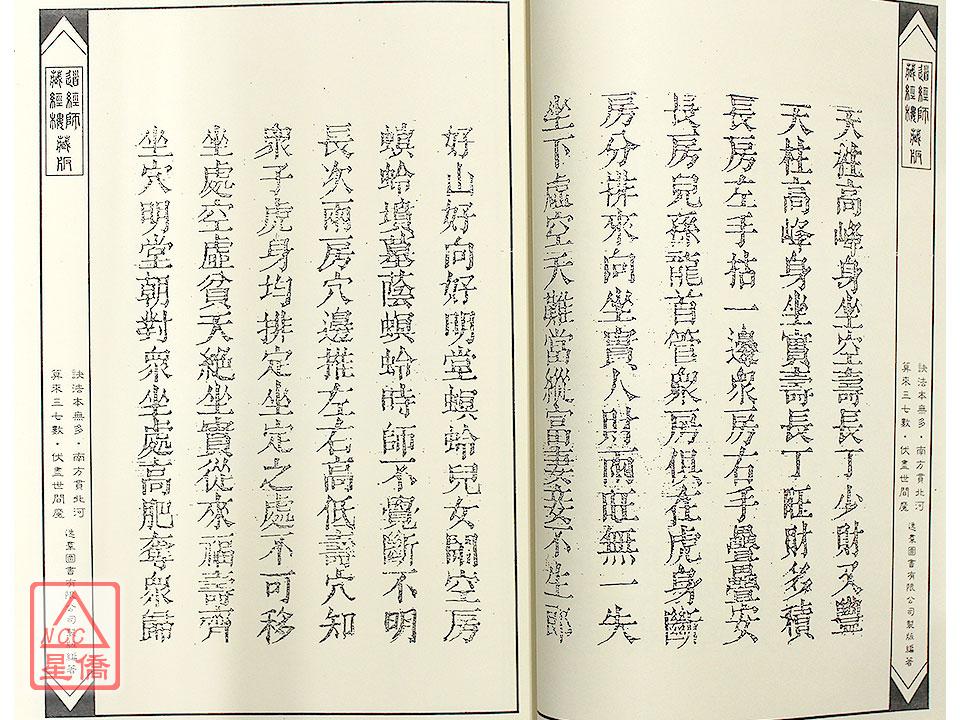 天柱高峰身坐空壽長丁少財不豐
天柱高峰身坐實壽長丁旺財多積
長房左手枯一邊眾房右手疊疊安
長房兒孫龍首管眾房俱在虎身斷
房分排來向坐實人財兩旺無一失
坐下虛空夭難當縱富妻妾不生郎
好山好向好明堂螟蛉兒女鬧空房
螟蛉墳墓蔭螟蛉時師不覺斷不明
長次兩房穴邊推左右高低壽穴知
眾子虎身均排定坐定之處不可移
坐處空虛貧夭絕坐實從來福壽齊
坐穴明堂朝對眾坐處高肥奪眾歸
道經師藏經樓藏版
訣法本無多‧南方貫北河
算來三七數‧伏盡世間魔
逸群圖書有限公司製版編著
道經師藏經樓藏版
訣法本無多‧南方貫北河
算來三七數‧伏盡世間魔
逸群圖書有限公司製版編著
NCC
星僑